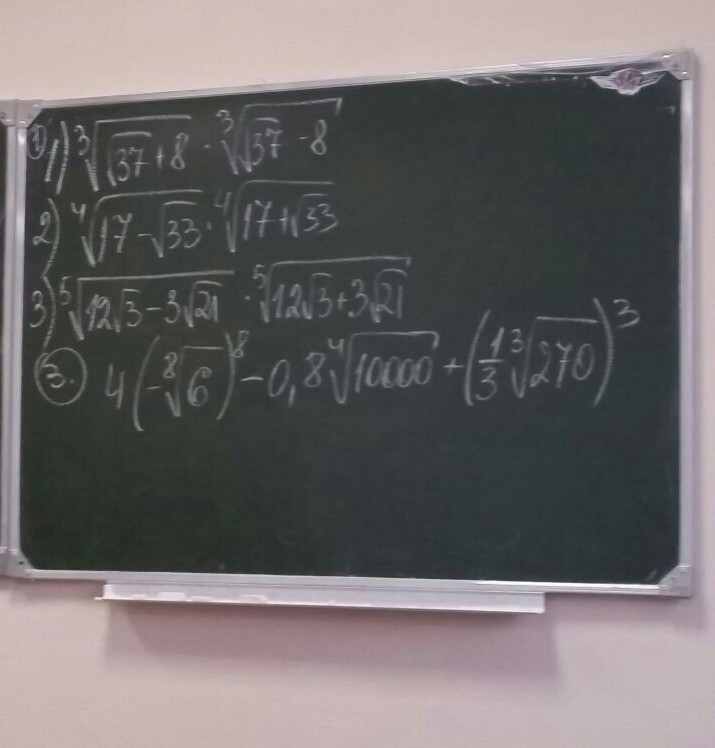 ① 1) ∛(√37 + 8) · ∛(√37 - 8)
2) ∜(17 - √33) · ∜(17 + √33)
3) ⁵√(12√3 - 3√21) · ⁵√(12√3 + 3√21)
③. 4(-⁸√6)⁸ - 0,8 ∜10000 + (1/3 ∛270)³